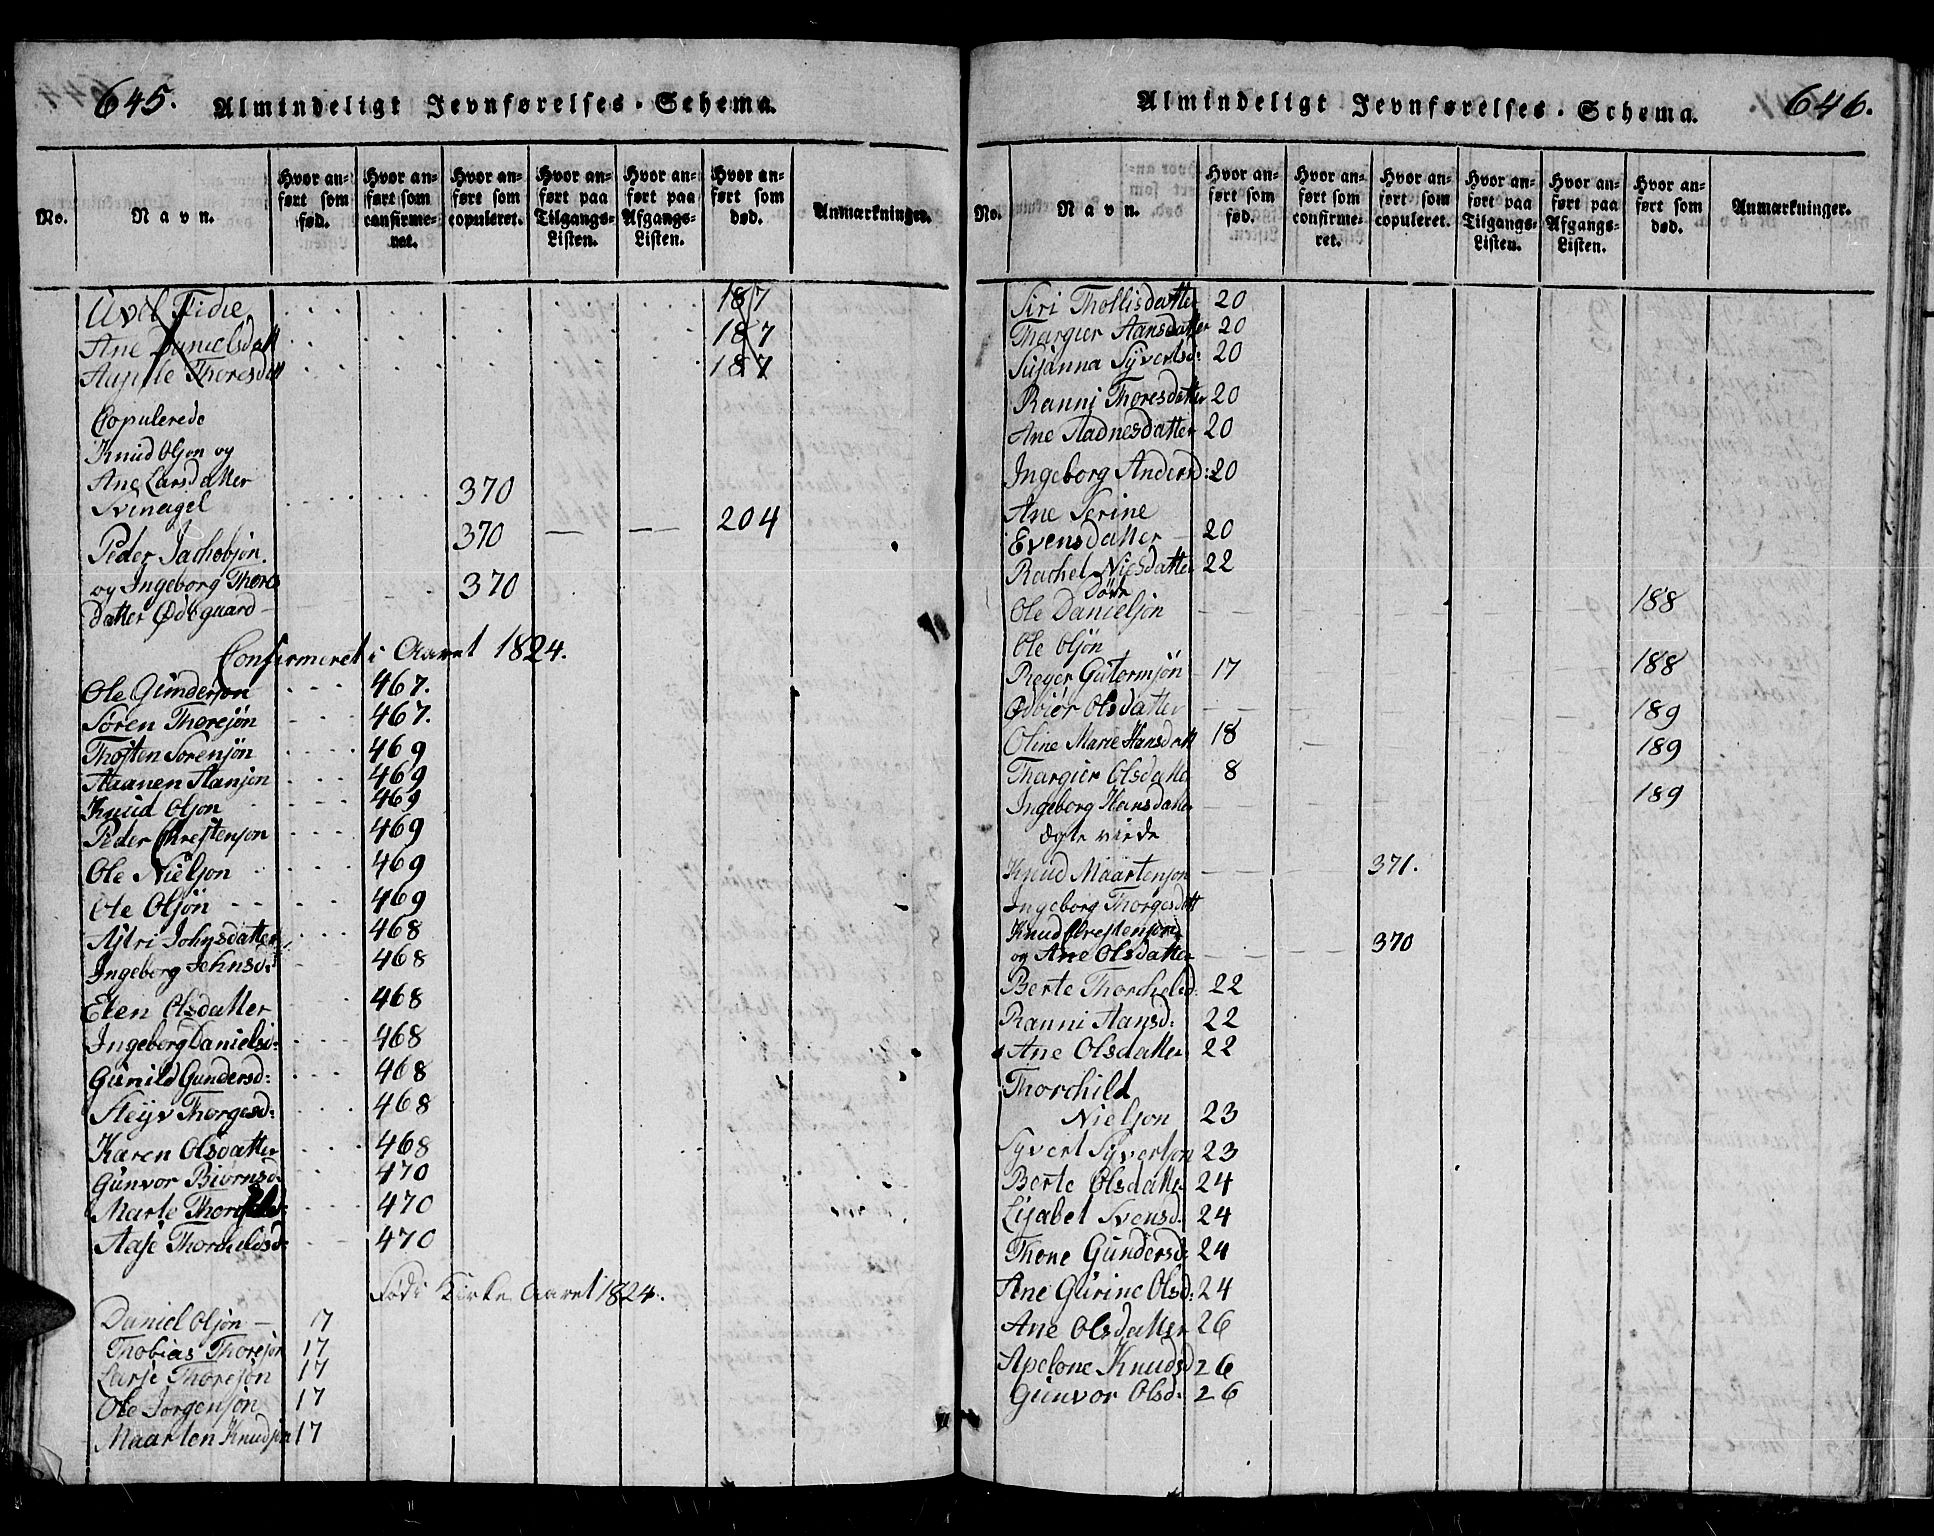 645. Almindeligt Jevnførelses-Schema.
No. Navn. Hvor anført som fød. Hvor anført som confirmeret. Hvor anført som copuleret. Hvor anført paa Tilgangs-Listen. Hvor anført paa Afgangs-Listen. Hvor anført som død. Anmærkninger.
187
Ane Danielsdatt 187
Thoresdatt 187
Copulerede
Knud Olsøn og
Ane Larsdatter
Svinagel 370
Peder Jachobsøn. 370 204
og Ingeborg Thores
Datter Ødegaard 370
Confirmeret i Aaret 1824.
Ole Gundersøn 467.
Søren Thoresøn 467.
Thosten Sørensøn 469
Aaanen Aansøn 469
Knud Olsøn 469
Peder Chrestensøn 469
Ole Nielsøn 469
Ole Olsøn 469
Astri Johnsdatter 468
Ingeborg Johnsd: 468
Elen Olsdatter 468
Ingeborg Danielsd: 468
Gunild Gundersd: 468
Thorgesd: 468
Karen Olsdatter 468
Gunvor Biørnsd: 470
Marte 470
Aase Thorchildsd: 470
Fød i Kirke Aaret 1824.
Daniel Olsøn 7
Thobias Thoresøn 17
Larse Thoresøn 17
Ole Jørgensøn 17
Maarten Knudsøn 17
Almindeligt Jevnførelses-Schema. 646.
No. Navn. Hvor anført som fød. Hvor anført som confirmeret. Hvor anført som copuleret. Hvor anført paa Tilgangs-Listen. Hvor anført paa Afgangs-Listen. Hvor anført som død. Anmærkninger.
Siri Thollisdatter 20
Thargier Aansdatter 20
Susanna Syvertsd: 20
Ranni Thoresdatter 20
Ane Aadnesdatter 20
Ingeborg Andersd: 20
Ane Serine
Evensdatter 20
Rachel Nielsdatter 22
Døde
Ole Danielsøn 188
Ole Olsøn 188
Reyer Gutormsøn 17
Ødbiør Olsdatter 189
Oline Marie Hansdatt 18 189
Thargier Olsdatter 8
Ingeborg Hansdatter 189
Ægte viede
Knud Maartensøn 371.
Ingeborg Thorgesdatt
Knud Chrestensøn
og Ane Olsdatter 370
Berte Thorchelsd: 22
Ranni Aansd: 22
Ane Olsdatter 22
Thorchild
Nielsøn 23
Syvert Syvertsøn 23
Berte Olsdatter 24
Lisabet Svensd: 24
Thone Gundersd: 24
Ane Gurine Olsd: 24
Ane Olsdatter 26
Apelone Knudsd 26
Gunvor Olsd: 26